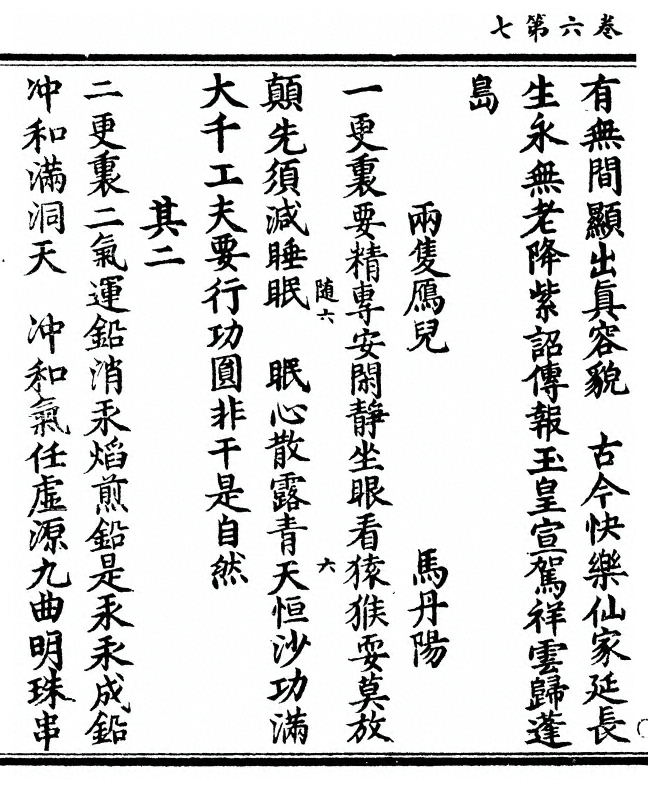 卷六第七
有無間顯出真容貌　古今快樂仙家延長
生永無老降紫詔傳報玉皇宣駕祥雲歸蓬
島
兩隻鴈兒　馬丹陽
一更裏要精專安閑靜坐眼看猿猴耍莫放
顛先須減睡眠　眠心散露青天恒沙功滿
随六　六
大千工夫要行功圓非干是自然
其二
二更裏二氣運鉛消汞焰煎鉛是汞汞成鉛
冲和滿洞天　冲和氣任虛源九曲明珠串